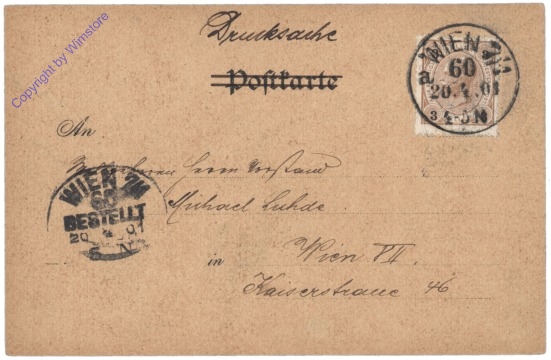 Copyright by Wimstore
Drucksache
Postkarte
WIEN 7/1
60
a
20.4.01
3 ¼-5N
An
Herrn Vorstand
WIEN 7/1
60
BESTELLT
20 4 01
Michael
in Wien VII.
Kaiserstrasse 46